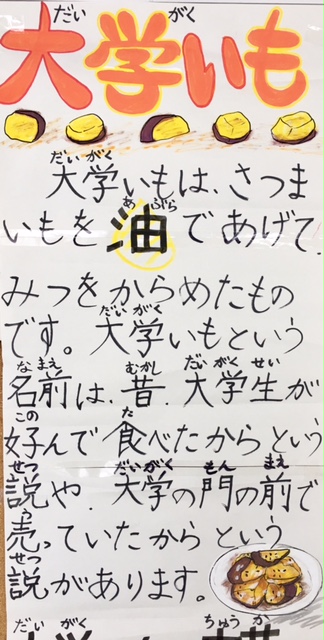 だい がく
大学いも
だい がく
大学いもは、さつま
あぶら
いもを油であげて、
みつをからめたもの
だい がく
です。大学いもという
な まえ むかし だい がく せい
名前は、昔、大学生が
この た
好んで食べたからという
せつ だいがく もん まえ
説や、大学の門の前で
う
売っていたからという
せつ
説があります。
だい がく ちゅう か